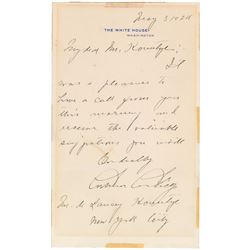 May 5 1924
THE WHITE HOUSE
WASHINGTON
My dear Mr. Kountze:
It
was a pleasure to
have a call from you
this morning and
receive the valuable
suggestions you made
Cordially
Calvin Coolidge
Mr. de Lancey Kountze
New York City